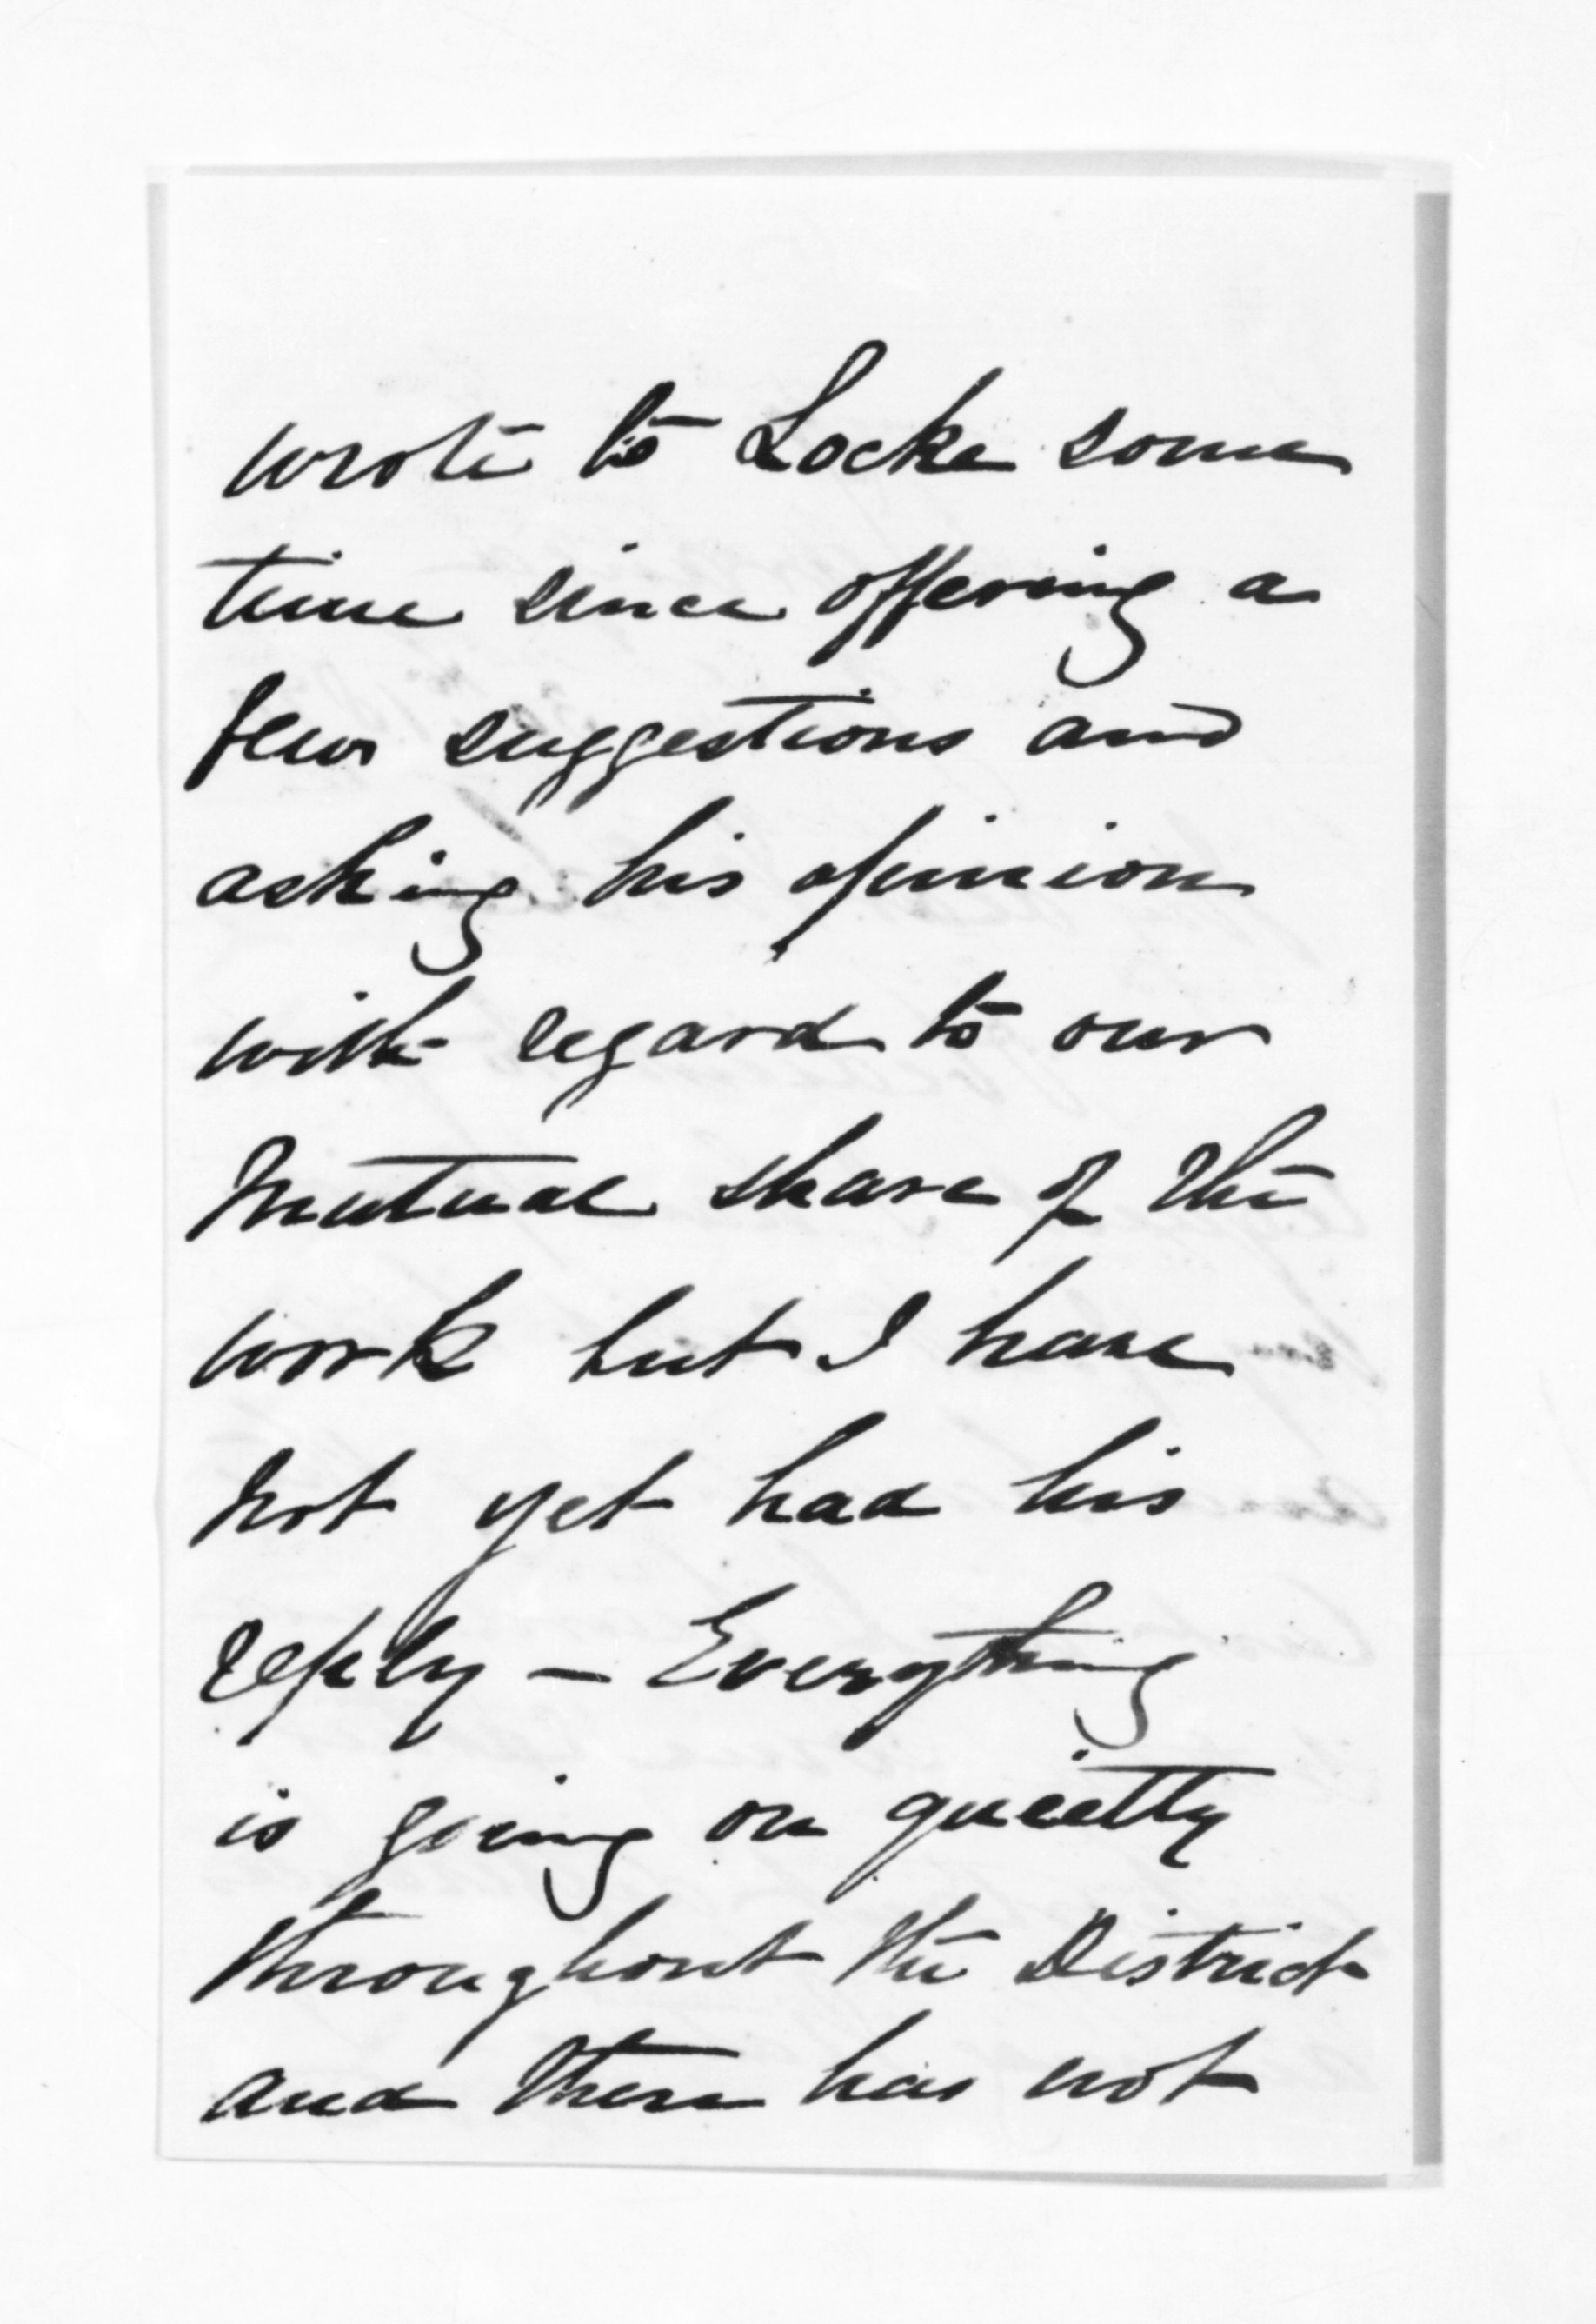 wrote to Locke some
time since offering a
few suggestions and
asking his opinion
with regard to our
mutual share of the
work but I have
not yet had his
reply — Everything
is going on quietly
throughout the District
and there has not